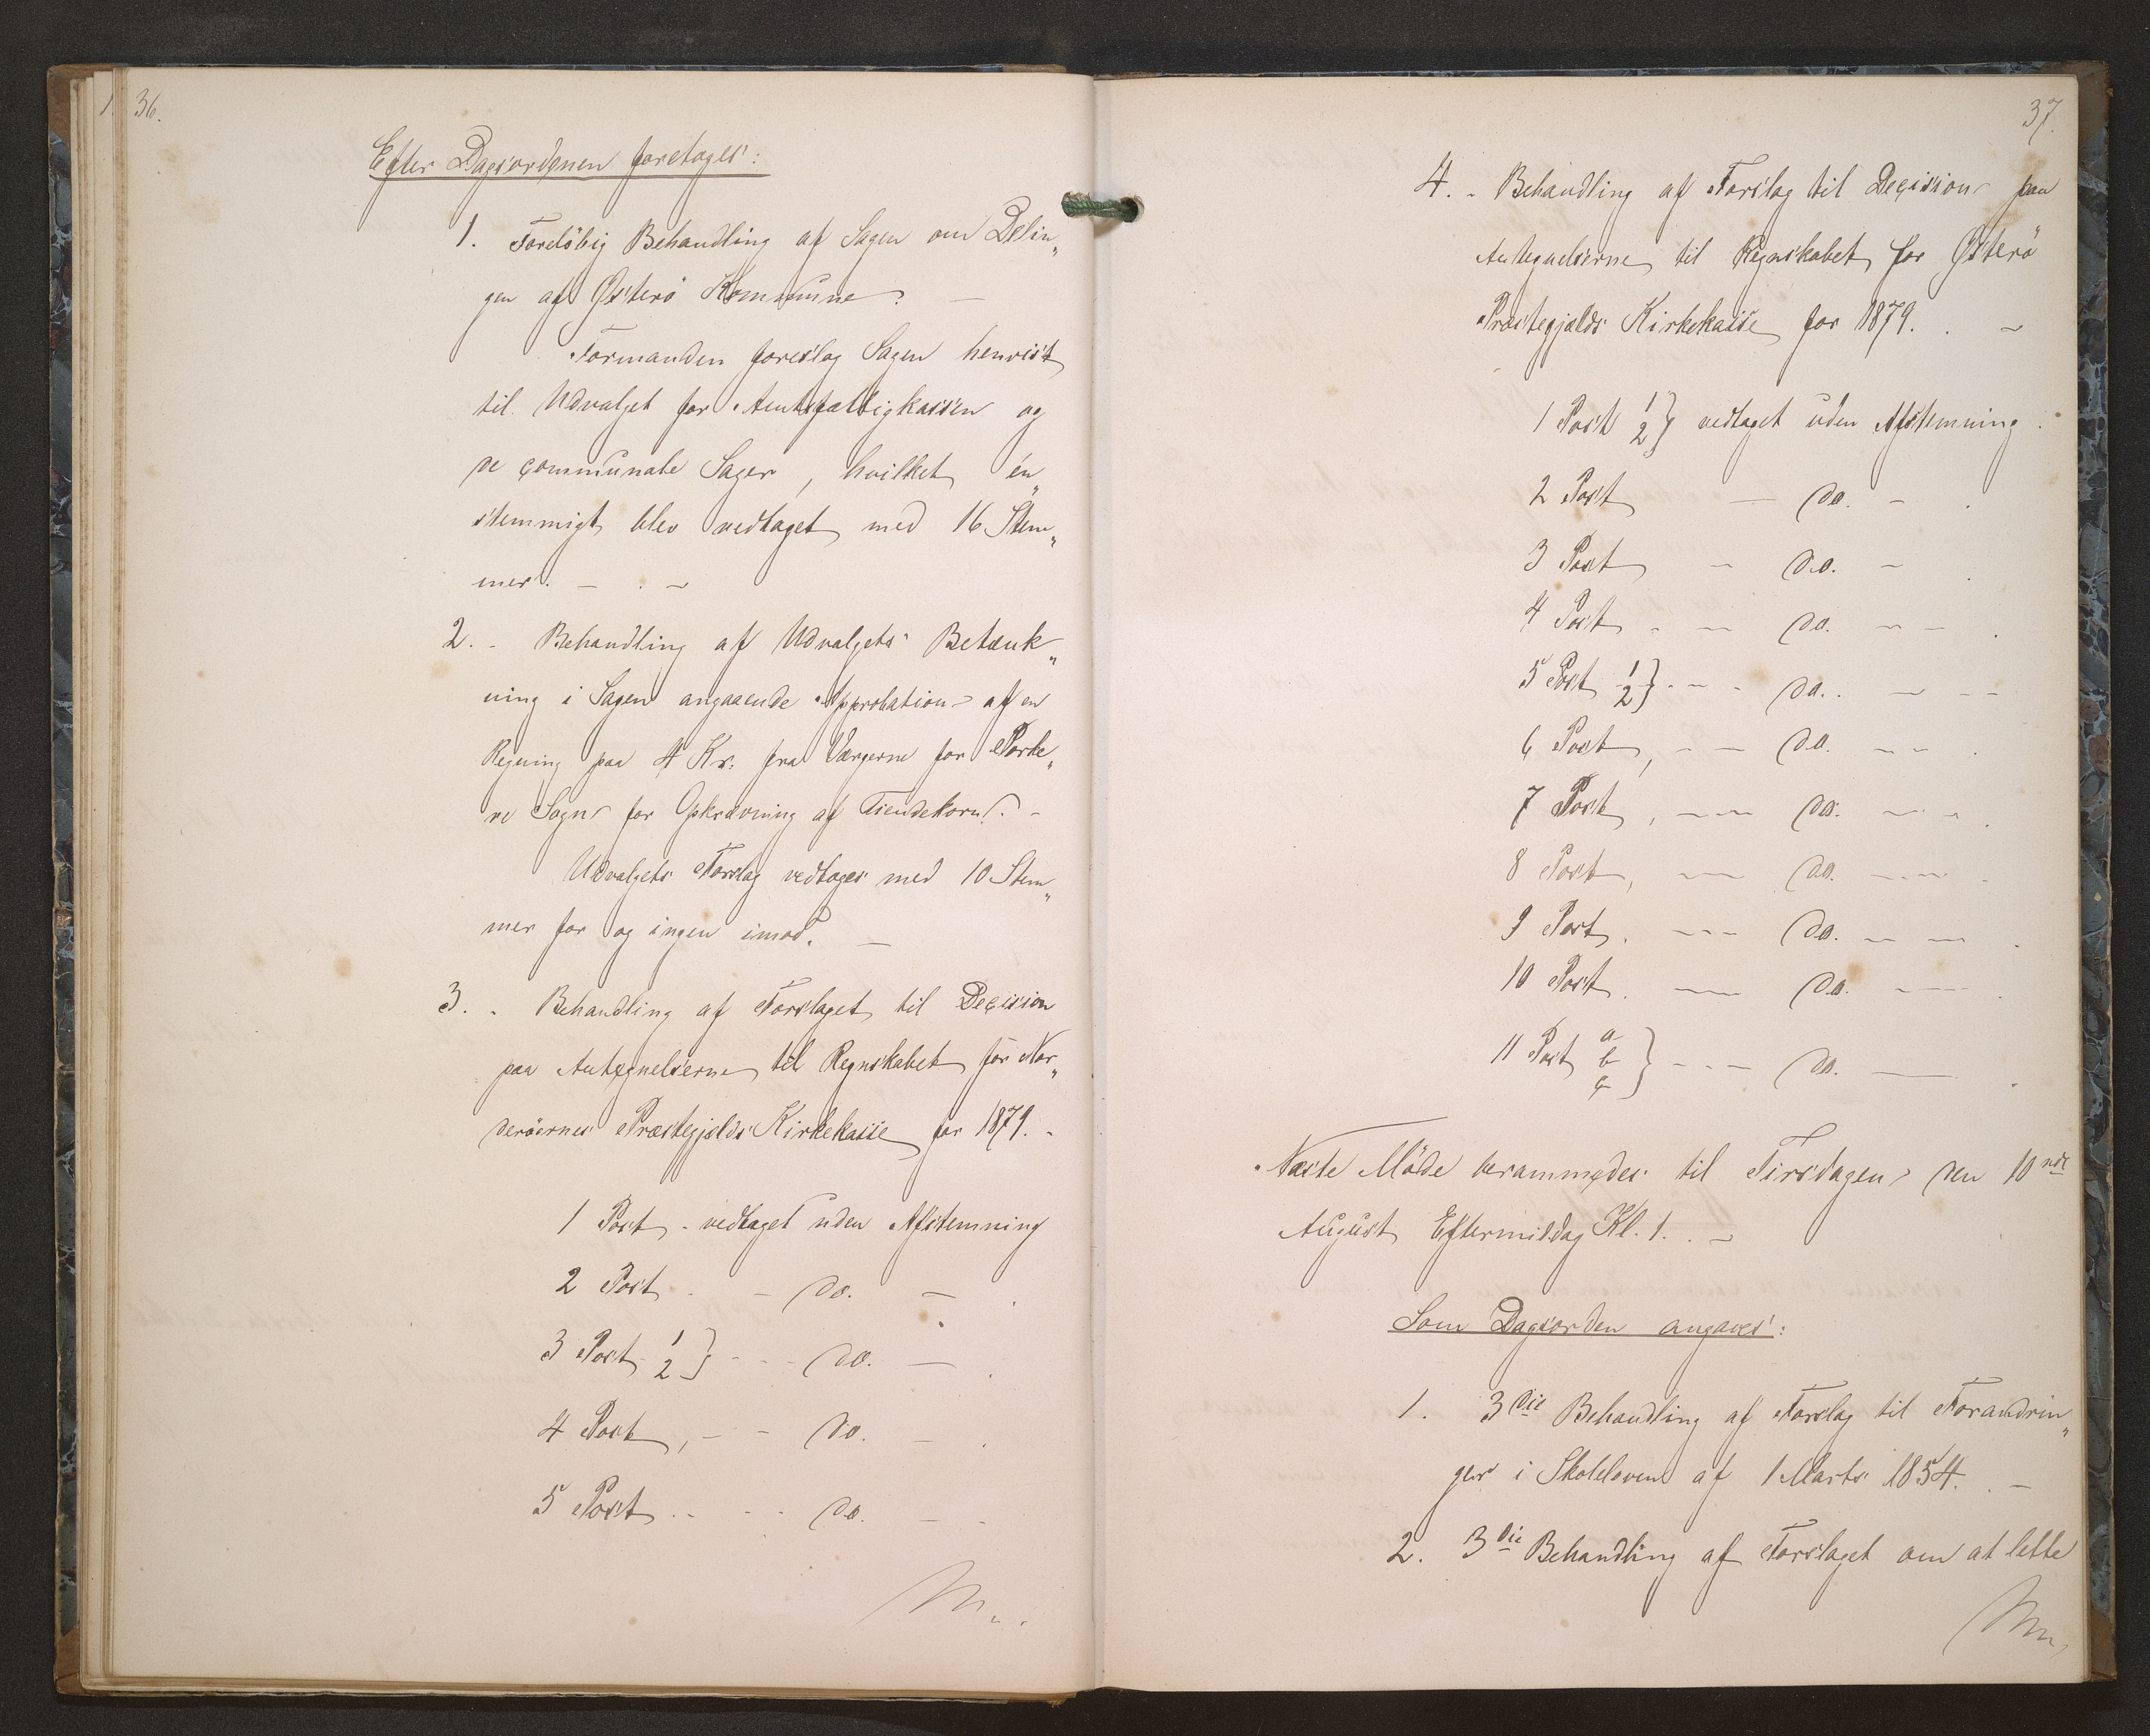 36.
Efter Dagsordenen foretoges:
1. Foreløbig Behandling af Sagen om Delin„
gen af Østerö Kommune. —
Formanden foreslog Sagen henvist
til Udvalget for Amtsfattigkassen og
de communale Sager, hvilket én„
stemmigt blev vedtaget med 16 Stem„
mer. —
2. - Behandling af Udvalgets Betænk„
ning i Sagen angaaende Approbation af en
Regning paa 4 Kr. fra Værgerne for Porke„
re Sogn for Opkrævning af Tiendekorn. -
Udvalgets Forslag vedtoges med 10 Stem„
mer for og ingen imod. —
3. - Behandling af Forslaget til Decision
paa Antegnelserne til Regnskabet for Nor„
derøernes Præstegjælds Kirkekasse for 1879. -
1 Post - vedtaget uden Afstemning
2 Post - — do. — .
3 Post 1/2} - - - do. — .
4 Post, - - do. — .
5 Post - - - do. — -
37.
4. - Behandling af Forslag til Decision paa
Antegnelserne til Regnskabet for Østerö
Præstegjælds Kirkekasse for 1879. . —
1 Post 1/2} vedtaget uden Afstemning.
2 Post — do. - .
3 Post - do. - .
4 Post - — do. — - .
5 Post 1/2} - - - do. — - -
6 Post, - — do. - - .
7 Post, — - do. — - .
8 Post, — do. — - .
9 Post. — - do. - — .
10 Post. — do. — .
11 Post a b c} - - - do. — .
Næste Møde berammedes til Tirsdagen den 10nde
August Eftermiddag Kl. 1. . —
Som Dagsorden angaves:
1. 3die Behandling af Forslag til Forandrin„
ger i Skoleloven af 1 Marts 1854. . —
2. 3die Behandling af Forslaget om at lette